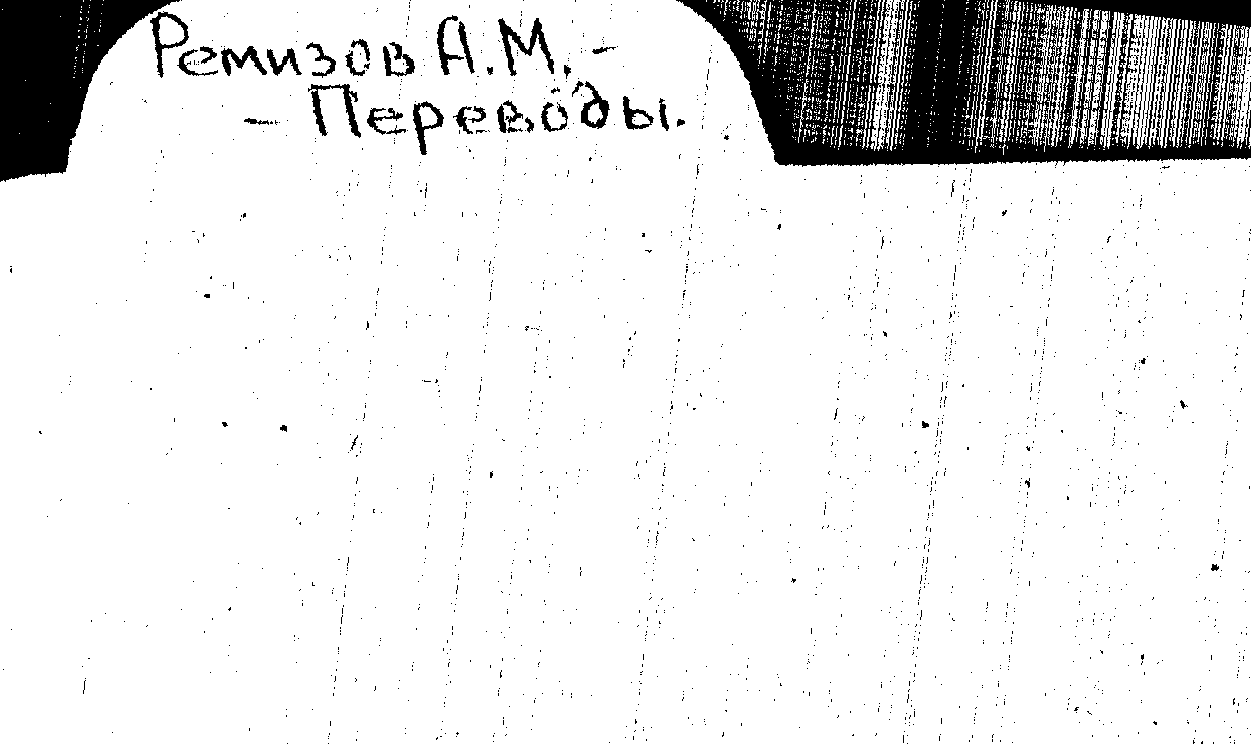 Ремизов А.М. -
- Переводы.